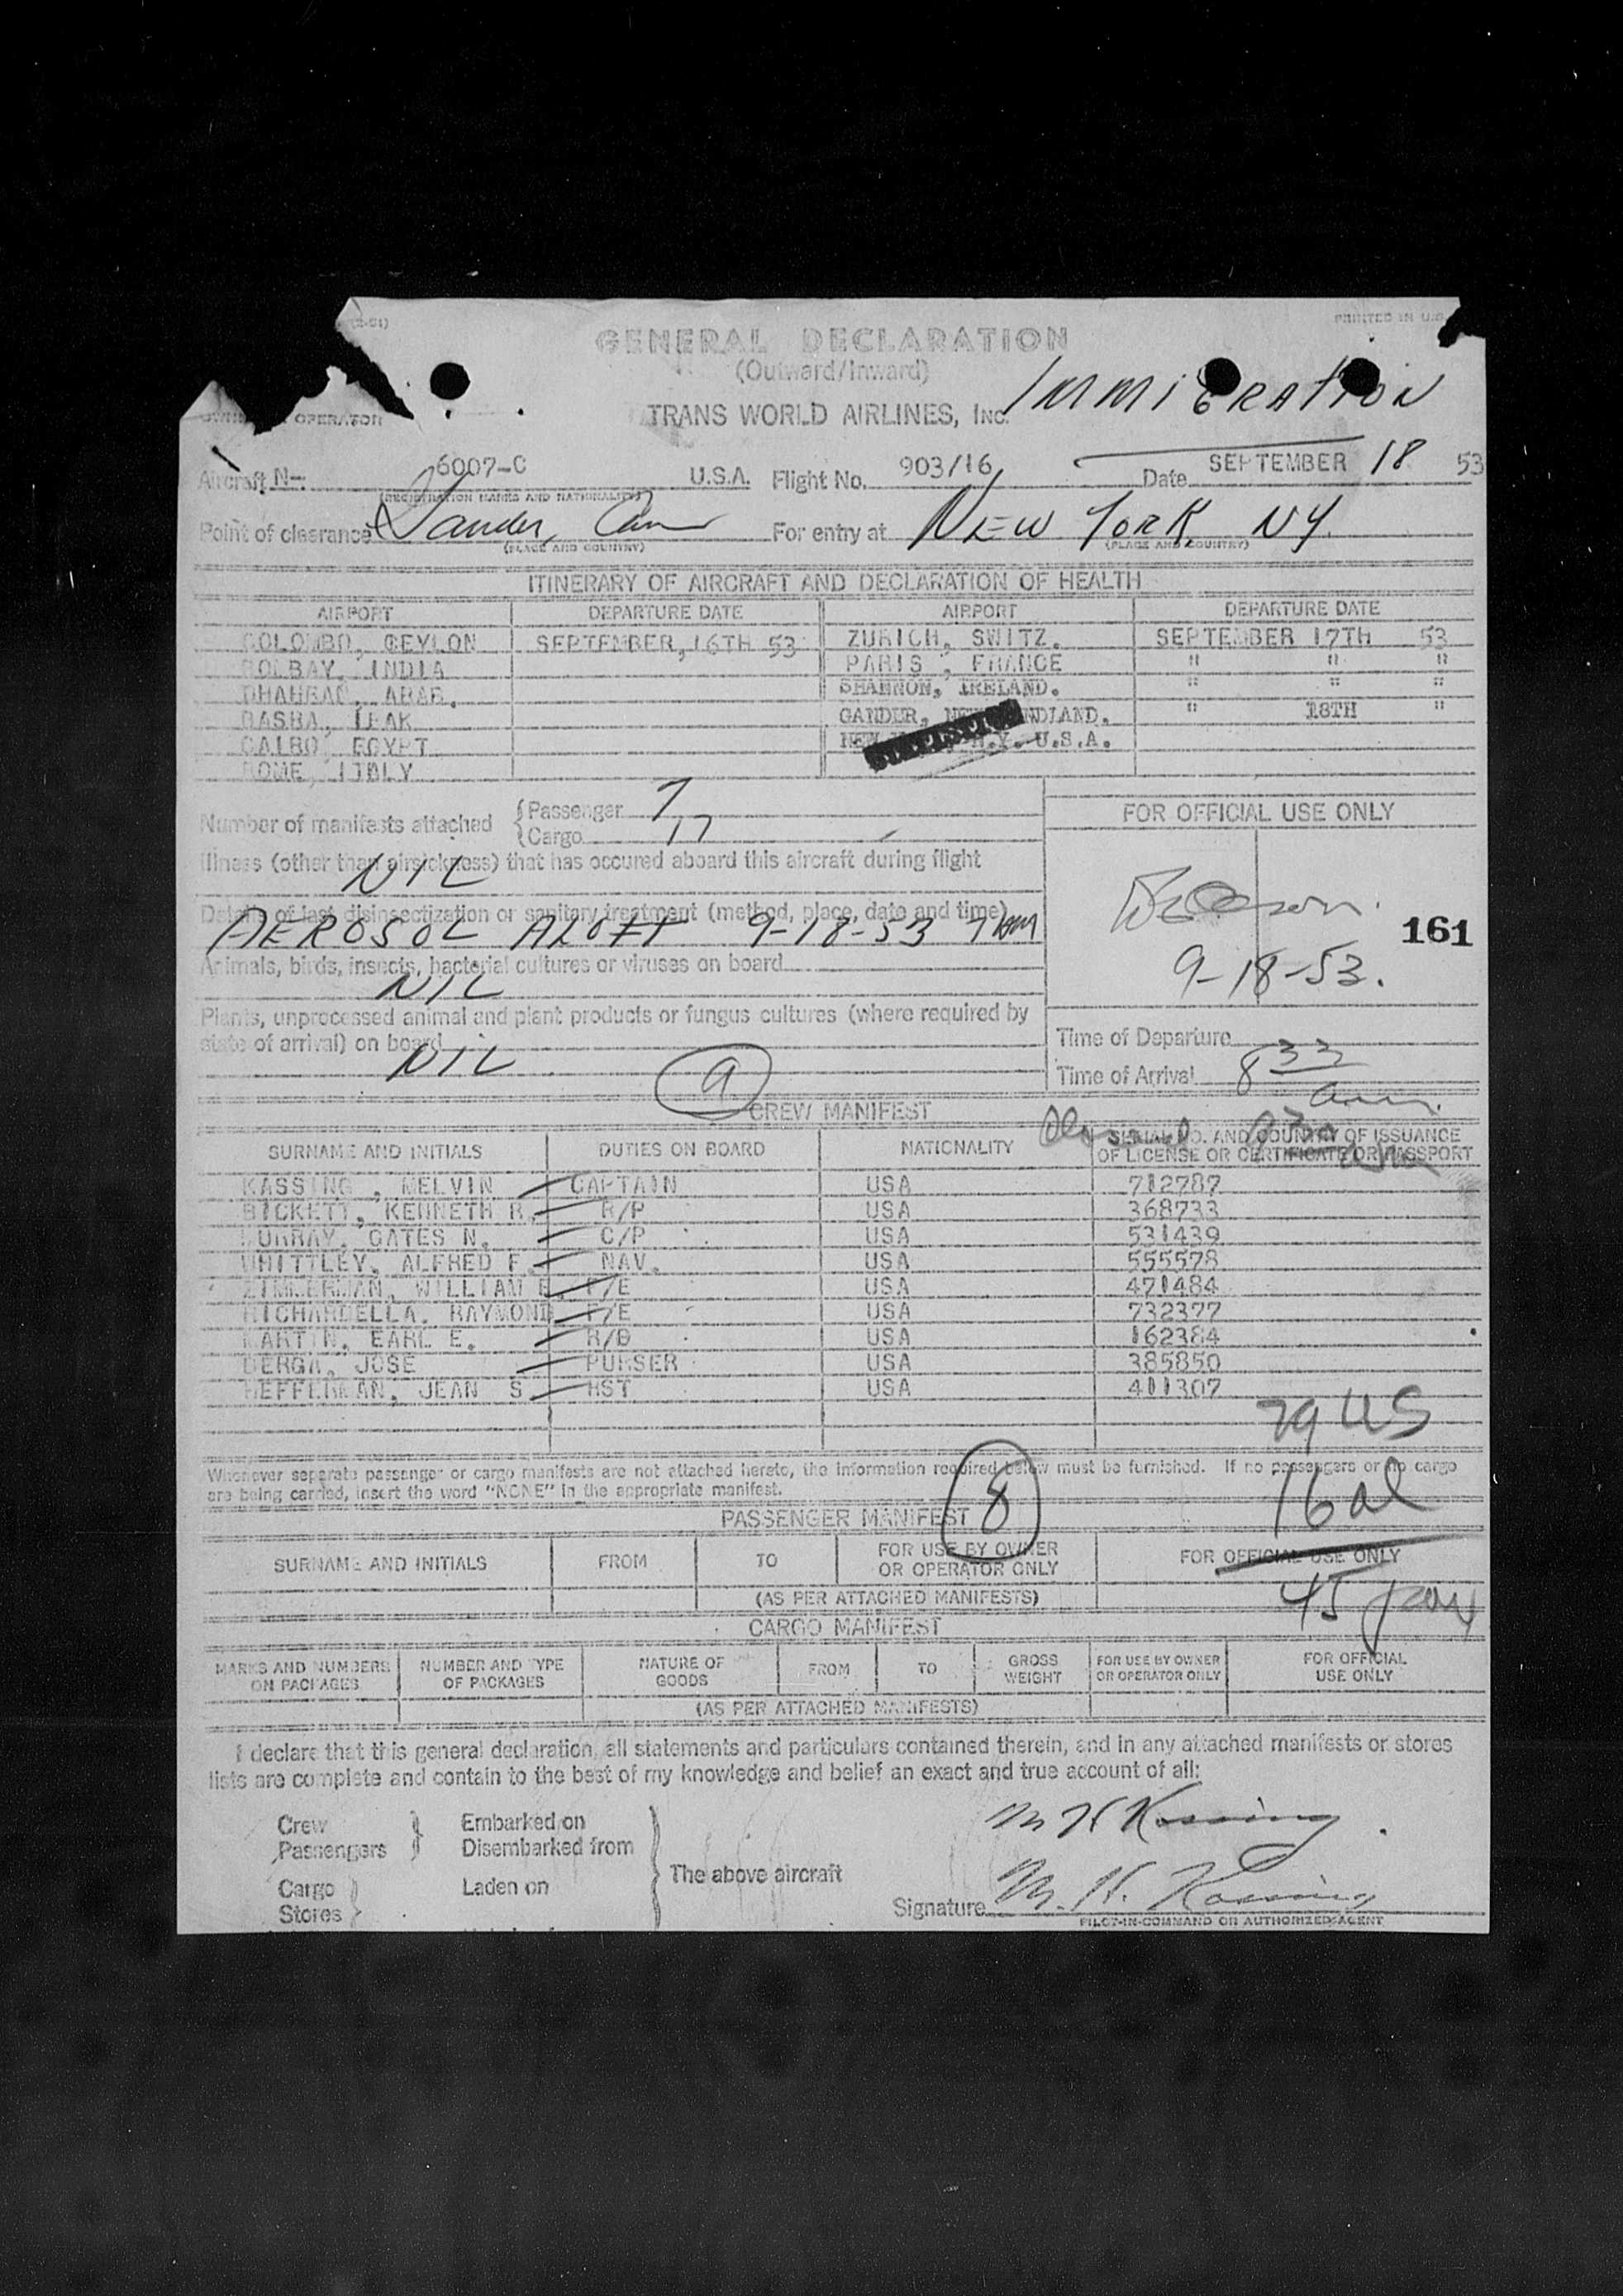 PRINTED IN U.S.
GENERAL DECLARATION
(Outward/Inward)
IMMIGRATION
OPERATOR
TRANS WORLD AIRLINES, INC.
Aircraft N-. 6007-C U.S.A. Flight No. 903/16 Date SEPTEMBER 18 53
(REGISTRATION MARKS AND NATIONALITY)
Point of clearance Gander, For entry at NEW YORK NY.
(PLACE AND COUNTRY) (PLACE AND COUNTRY)
ITINERARY OF AIRCRAFT AND DECLARATION OF HEALTH
AIRPORT DEPARTURE DATE AIRPORT DEPARTURE DATE
COLOMBO, CEYLON SEPTEMBER, 16TH 53 ZURICH, SWITZ. SEPTEMBER 17TH 53
BOLBAY, INDIA PARIS , FRANCE " " "
DHAHRAN, ARAB. SHANNON, IRELAND. " " "
BASRA, IRAK GANDER, NDLAND. " 18TH "
CAIRO EGYPT N.Y. U.S.A.
ROME, ITALY
Number of manifests attached {Passenger 7
{Cargo 17
FOR OFFICIAL USE ONLY
Illness (other than airsickness) that has occured aboard this aircraft during flight
NIL
Details of last disinsectization or sanitary treatment (method, place, date and time)
AEROSOL ALOFT 9-18-53 7 AM
161
Animals, birds, insects, bacterial cultures or viruses on board
NIL
9-18-53.
Plants, unprocessed animal and plant products or fungus cultures (where required by
state of arrival) on board
NIL
Time of Departure
Time of Arrival 8 33 am.
9
CREW MANIFEST
SURNAME AND INITIALS DUTIES ON BOARD NATIONALITY SERIAL NO. AND COUNTRY OF ISSUANCE
OF LICENSE OR CERTIFICATE OR PASSPORT
KASSING , MELVIN CAPTAIN USA 712787
BICKETT, KENNETH R. R/P USA 368733
MURRAY, GATES N. C/P USA 531439
WHITTLEY, ALFRED F. NAV. USA 555578
ZIMMERMAN, WILLIAM F/E USA 471484
RICHARDELLA, RAYMOND F/E USA 732377
MARTIN, EARL E. R/O USA 162384
BERGA, JOSE PURSER USA 385850
HEFFERNAN, JEAN S. HST USA 411307
29 US
Whenever separate passenger or cargo manifests are not attached hereto, the information required below must be furnished. If no passengers or no cargo
are being carried, insert the word "NONE" in the appropriate manifest.
16 al
8
PASSENGER MANIFEST
SURNAME AND INITIALS FROM TO FOR USE BY OWNER
OR OPERATOR ONLY FOR OFFICIAL USE ONLY
(AS PER ATTACHED MANIFESTS)
45
CARGO MANIFEST
MARKS AND NUMBERS
ON PACKAGES NUMBER AND TYPE
OF PACKAGES NATURE OF
GOODS FROM TO GROSS
WEIGHT FOR USE BY OWNER
OR OPERATOR ONLY FOR OFFICIAL
USE ONLY
(AS PER ATTACHED MANIFESTS)
I declare that this general declaration, all statements and particulars contained therein, and in any attached manifests or stores
lists are complete and contain to the best of my knowledge and belief an exact and true account of all:
Crew Embarked on
Passengers Disembarked from
The above aircraft
Cargo Laden on
Stores
M H Kassing
Signature M. H. Kassing
PILOT-IN-COMMAND OR AUTHORIZED AGENT